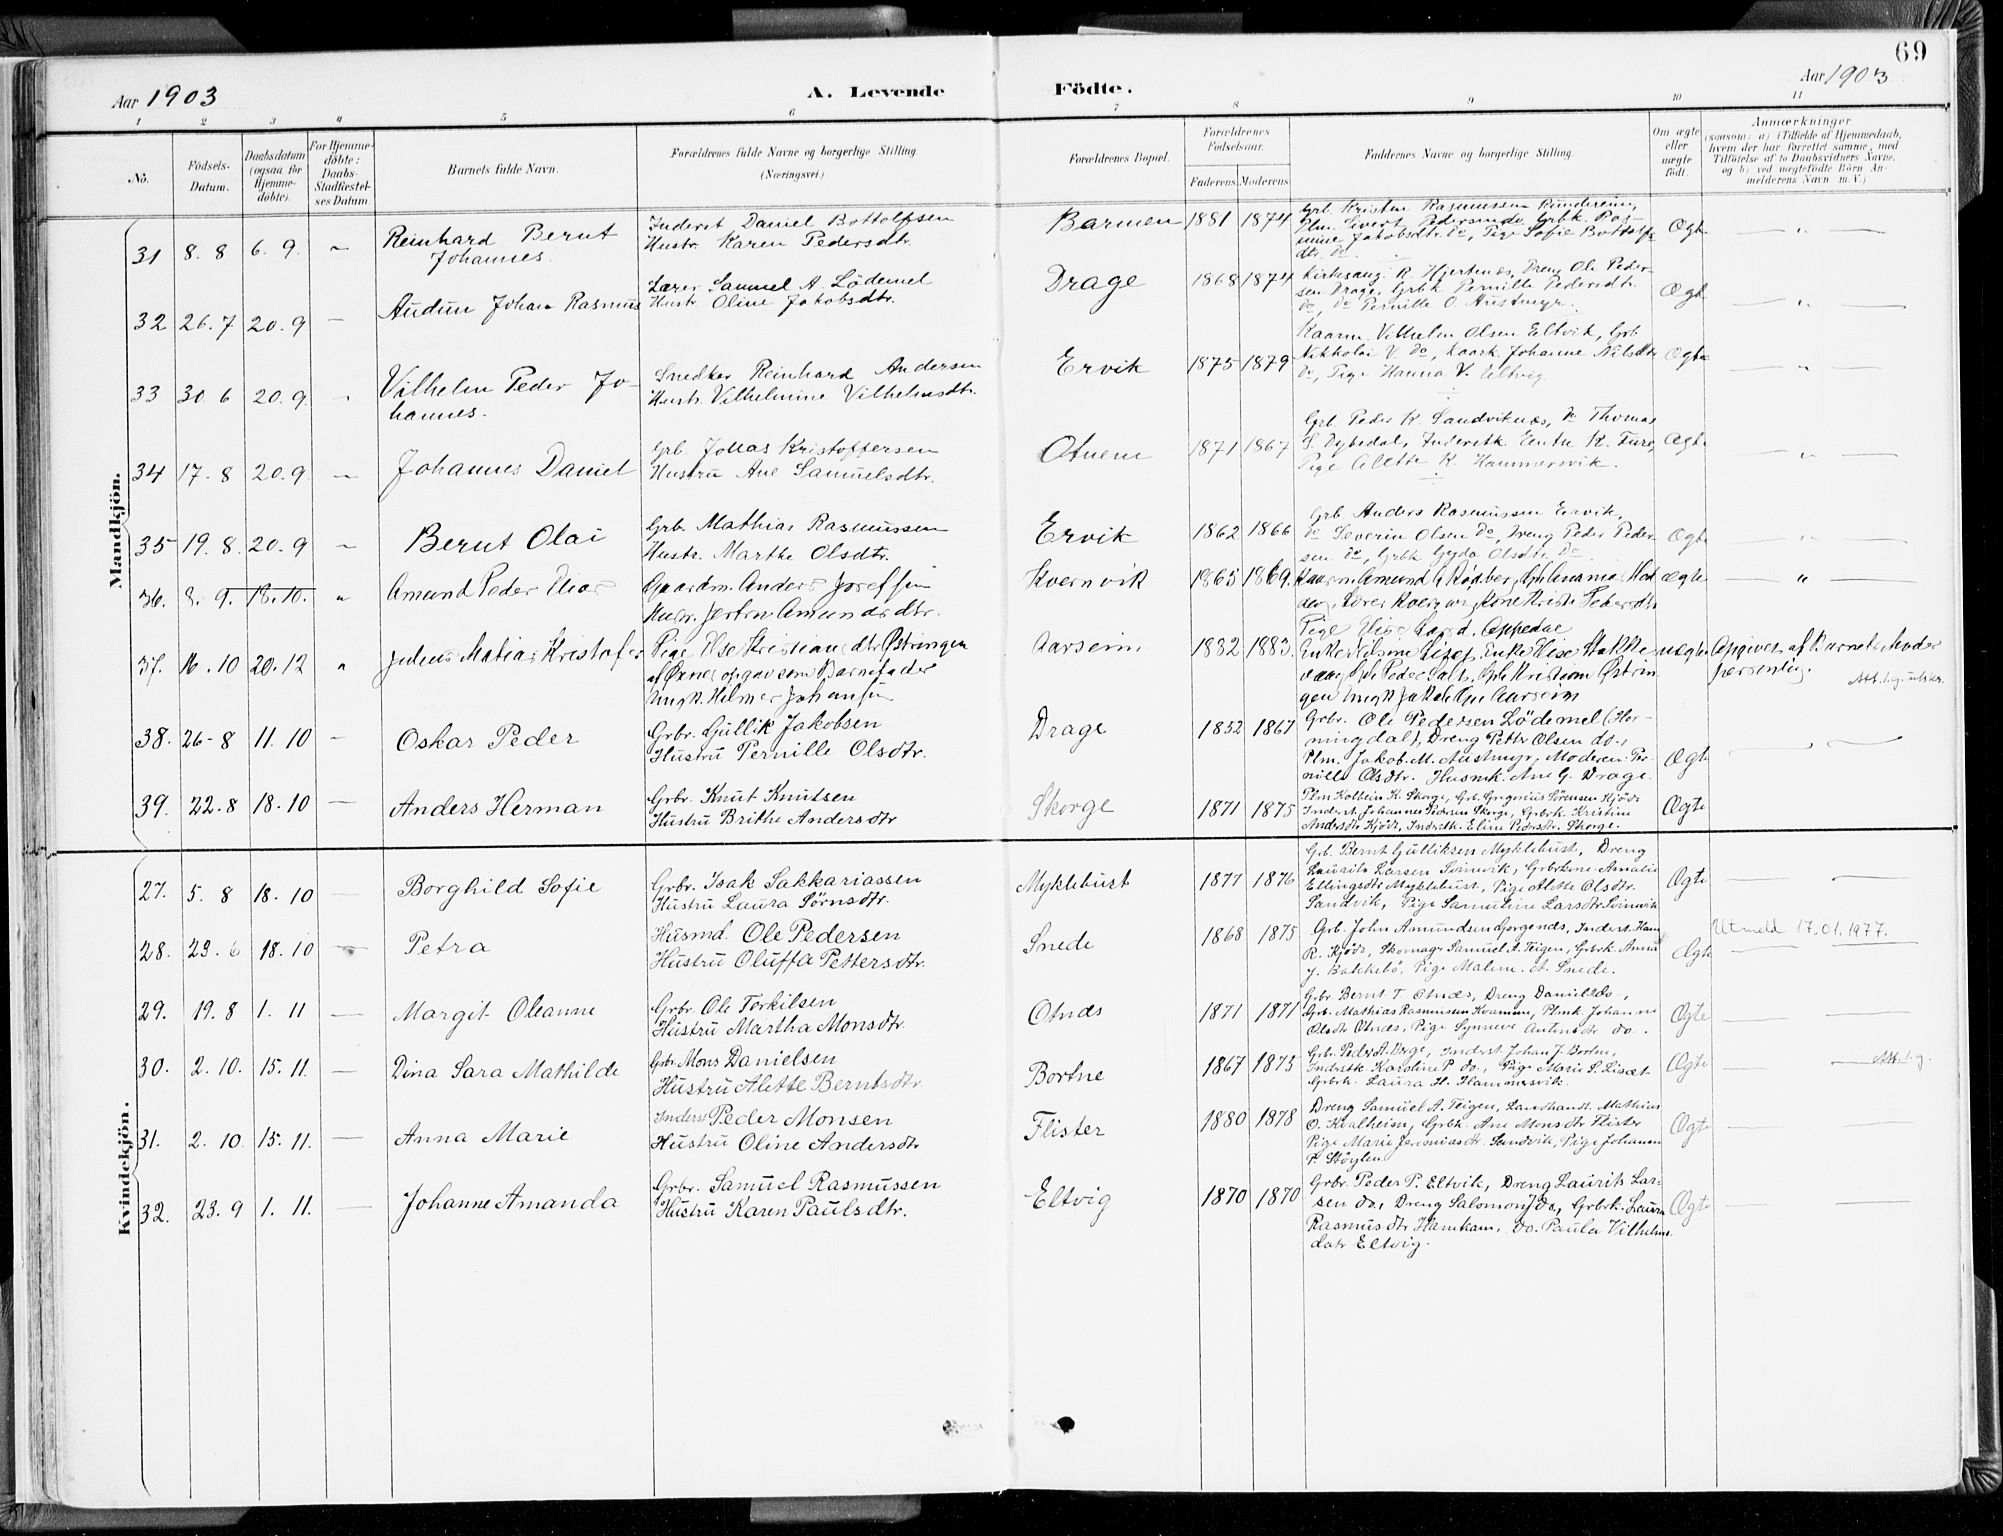 69
Aar 1903
A. Levende
Födte.
Aar 1903
1 2 3 4 5 6 7 8 9 10 11
No.
Födsels-
Datum.
Daabsdatum
(ogsaa for
Hjemme-
döbte).
For Hjemme-
döbte:
Daabs-
Stadfæstel-
ses Datum.
Barnets fulde Navn.
Forældrenes fulde Navne og borgerlige Stilling.
(Næringsvei.)
Forældrenes Bopæl.
Forældrenes
Födselsaar.
Faderens. Moderens.
Faddernes Navne og borgerlige Stilling.
Om ægte
eller
uægte
födt.
Anmærkninger
(saasom: a) i Tilfælde af Hjemmedaab,
hvem der har forrettet samme, med
Tilföielse af to Daabsvidners Navne,
og b) ved uægtefödte Börn An-
melderens Navn m. V.)
Mandkjön.
31 8. 8 6. 9. Reinhard Bernt
Johannes.
Inderst Daniel Bottolfsen
Hustr. Karen Pedersdtr.
Barmen 1881 1874
Grb. Kristen Rasmussen Runderein,
Plm. Sivert Pedersen do, Grbk. Ras-
mine Jakobsdtr. do, Pige Sofie Bottolfs
dtr. do.
Ægte
32 26. 7 20. 9 Audun Johan Rasmus
Lærer Samuel A. Lödemel
Hustr. Oline Jakobsdtr.
Drage 1868 1874
Kirkesang. R. Hjertenæs, Dreng Ole Peder-
sen Drage, Grbk Pernille Pedersdtr.
do, do Pernille O Austmyr.
Ægte
33 30 6 20. 9. Vilhelm Peder Jo-
hannes.
Snedker Reinhard Andersen
Hustr. Vilhelmine Vilhelmsdtr.
Ervik 1875 1879
Kaarm. Vilhelm Olsen Eltvik, Grb
Nikholai V. do, Kaark. Johanne Nilsdtr
do, Pige Hanna V. Eltvig.
Ægte
34 17. 8 20. 9 Johannes Daniel
Grb. Jonas Kristoffersen
Hustru Ane Samuelsdtr.
Otnem 1871 1867
Grb. Peder K. Sandviknæs, do Thomas
S. Dybedal, Inderstk. Eertine K. Fure,
Pige Alette K. Hammersvik.
Ægte
35 19. 8. 20. 9 Bernt Olai
Grb. Mathias Rasmussen
Hustr. Marthe Olsdtr.
Ervik 1862 1866
Grb Anders Rasmussen Ervik,
do Severin Olsen do, Dreng Peder Peder-
sen do, Grbk Gyda Olsdtr. Do
Ægte
36. 8. 9. 18. 10. Amund Peder Elias
Gaardm. Anders Josefsen
Hustr. Jertru Amundsdtr.
Kvernvik 1865 1869.
ægte
Pige Elise Lars d. Oppedal
37. 16. 10 20. 12 Julius Matias Kristofer
Pige Else Kristiansdtr Östringen
af Ørnes opgav som Barnefader
Ungk. Hilmer Johansen
Aarseim 1882 1883.
vaag, Gb. Peder Satt, Gb. Kristian Østrin
gen Ungk Jakob Aarseim
uægte Opgivet af Barnets Moder
personlig.
38. 26-8 11. 10 Oskar Peder
Grbr. Gullik Jakobsen
Hustru Pernille Olsdtr.
Drage 1852 1867
Grbr. Ole Pedersen Lödemel (Hor-
ningdal), Dreng Petter Olsen do.,
Plm. Jakob M. Austmyr, Moderen Per-
nille Olsdtr. Husmk. Ane G. Drage.
Ægte
39. 22. 8 18. 10 Anders Herman
Grbr. Knut Knutsen
Hustru Brithe Andersdtr
Skorge 1871 1875
Plm Kolbein K. Skorge, Grb. Gregorius Sörensen Kjöde
Inderst. Johannes Pedersen Skorge, Grbrk. Kristine
Andersdtr Kjöde, Indrstk. Eline Pedersdtr. Skorge.
Ægte
Kvindekjön.
27. 5. 8 18. 10 Borghild Sofie
Grbr. Isak Sakkariassen
Hustru Laura Sörnsdtr.
Myklebust 1877 1876
Grb. Bernt Gulliksen Myklebust, Dreng
Laurits Larsen Svinevik, Grbrkone Amalie
Ellingsdtr Myklebust, Pige Alette Olsdtr.
Sandvik, Pige Samuline Larsdtr Svinevik
Ægte
28. 23. 6 18. 10 Petra
Husmd. Ole Pedersen
Hustru Oluffa Pettersdtr.
Snede 1868 1875
Grb. John Amundsen Gorgenes, Inderst. Hans
R. Kjöde, Skomagr Samuel A. Teigen, Grbrk. Anna
J. Bakkebö, Pige Malene A. Snede.
Ægte
Utmeld 17.01.1977.
29. 19. 8 1. 11 Margit Oleanne
Grbr. Ole Torkilsen
Hustru Martha Monsdtr.
Otnes 1871 1871
Grbr. Bernt T. Otnæs, Dreng Daniel do,
Grb. Mathias Rasmussen Kvamme, Plmk. Johanne
Olsdtr Otnæs, Pige Synneve Antonsdtr do.
Ægte
30. 2. 10. 15. 11. Dina Sara Mathilde
Grbr. Mons Danielsen
Hustru Alette Berntsdtr
Bortne 1867 1875
Grb. Peder A. Berge, Inderst. Johan J. Bortne,
Indrstk Karoline P. do., Pige Marie S. Lisæt
Grbrk. Laura H. Hammersvik.
Ægte
Att. lig.
31. 2. 10. 15. 11. Anna Marie
Inderst Peder Monsen
Hustru Oline Andersdtr
Flister 1880 1878
Dreng Samuel A. Teigen, Landhandl. Mathias
O. Kvalheim, Grbrk. Ane Monsdtr Flister
Pige Marie Jeremiasdtr. Sandvik, Pige Johanne
P. Stöylen
Ægte
32. 23. 9 1. 11. Johanne Amanda
Grbr. Samuel Rasmussen
Hustru Karen Paulsdtr.
Eltvig 1870 1870
Grbr. Peder P. Eltvik, Dreng Laurits Lar-
sen do., Dreng Salomon J do, Grbrk. Laura
Rasmusdtr Hamkam, do. Paula Vilhelms
datr Eltvig.
Ægte